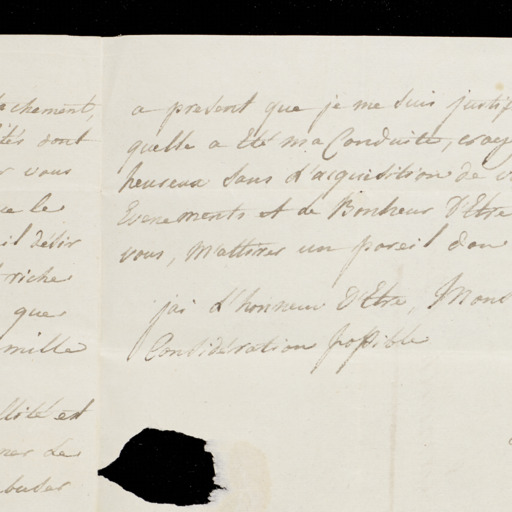 achement,
tés dont
r vous
ue le
il désir
riche
que
mille
llité est
ner de
buser
a present que je me suis justif
quelle a Eté ma Conduite, croy
heureux sans L'acquisition de v
Evenements et de Bonheur D'Etre
vous, M'attirer un pareil don
jai L'honneur D'Etre, Mons
Considération possible